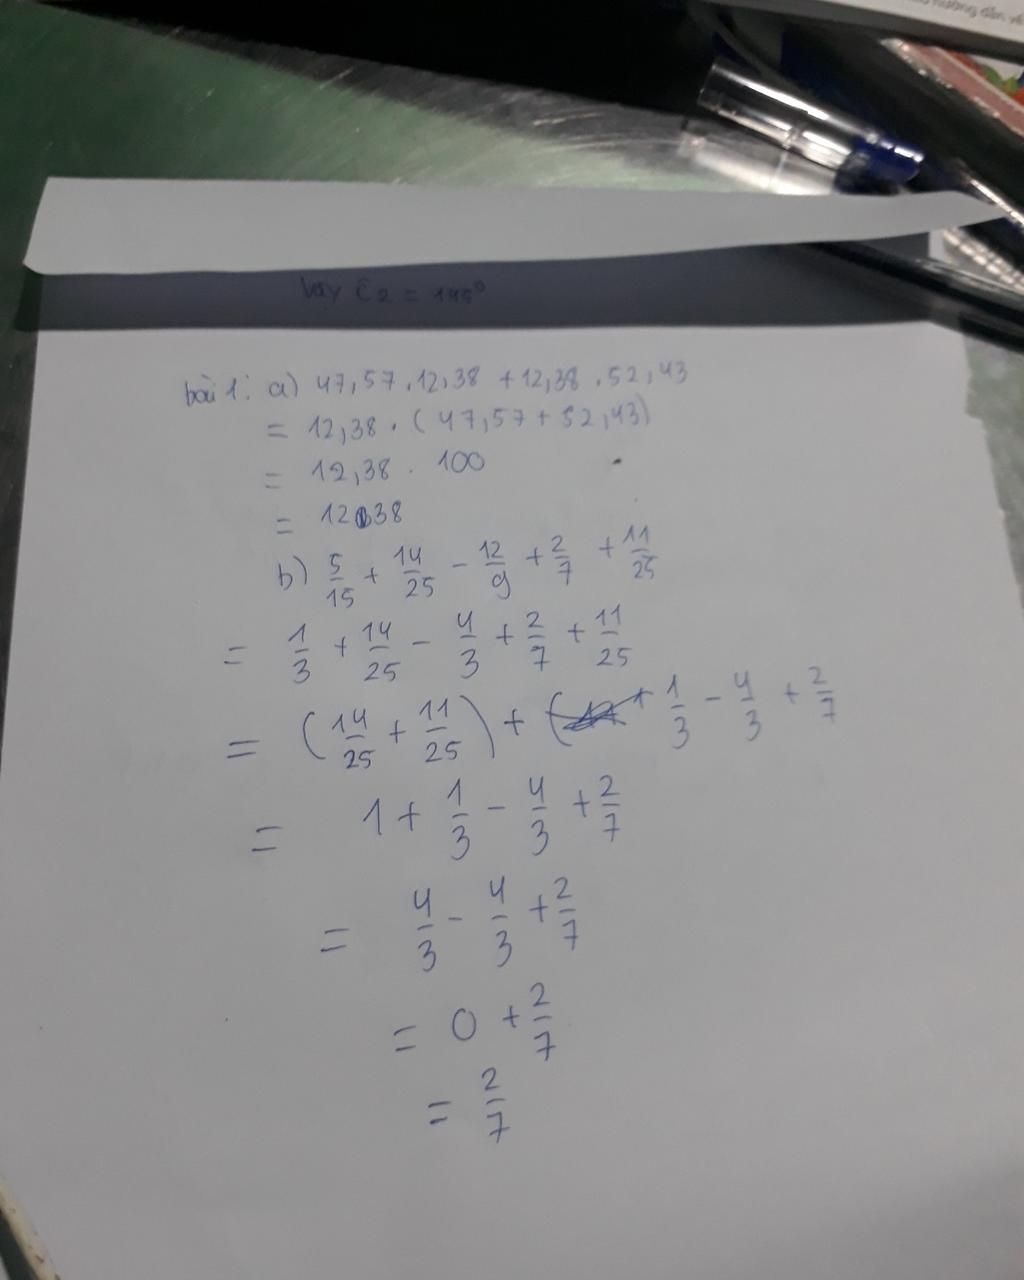 hướng dẫn về
Vậy C2 = 145°
bài 1: a) 47,57.12,38 + 12,38.52,43
= 12,38.(47,57+52,43)
= 12,38 . 100
= 1238
b) 5/15 + 14/25 - 12/9 + 2/7 + 11/25
= 1/3 + 14/25 - 4/3 + 2/7 + 11/25
= (14/25 + 11/25) + ( + 1/3 - 4/3 + 2/7
= 1 + 1/3 - 4/3 + 2/7
= 4/3 - 4/3 + 2/7
= 0 + 2/7
= 2/7